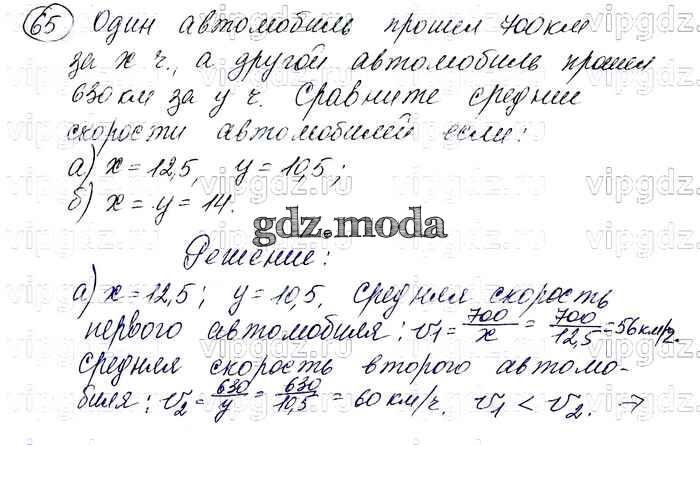 65 Один автомобиль прошел 700 км
за x ч., а другой автомобиль прошел
630 км за y ч. Сравните средние
скорости автомобилей если:
а) x = 12,5, y = 10,5;
б) x = y = 14.
gdz.moda
Решение:
а) x = 12,5; y = 10,5. Средняя скорость
первого автомобиля: v1 = 700/x = 700/12,5 = 56 км/ч.
Средняя скорость второго автомо-
биля: v2 = 630/y = 630/10,5 = 60 км/ч. v1 < v2. →